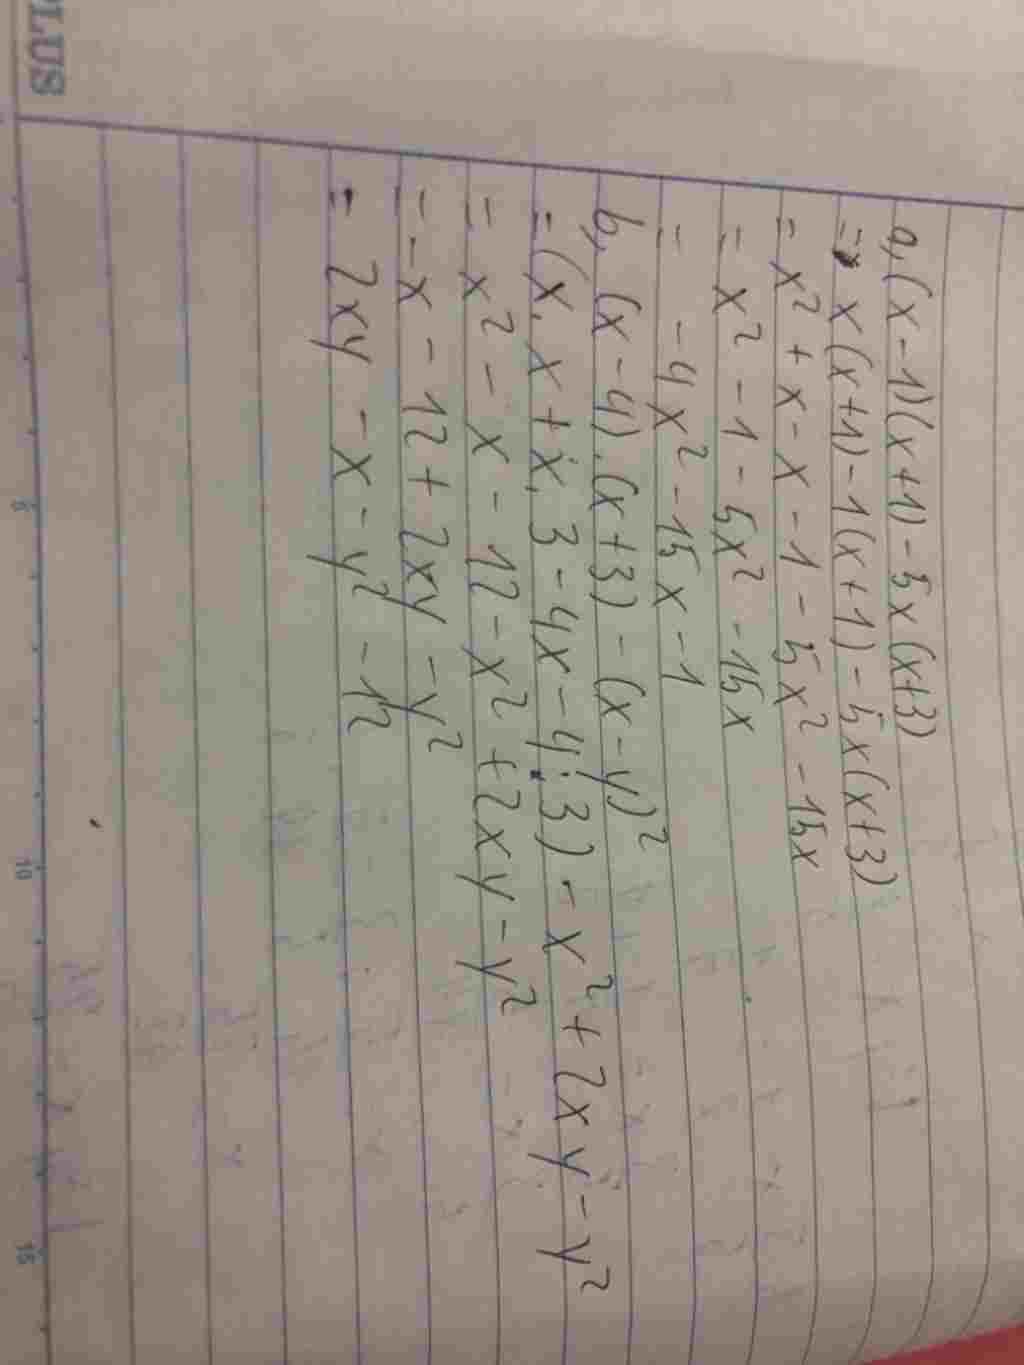 PLUS
a, (x-1)(x+1) - 5x(x+3)
=> x(x+1) - 1(x+1) - 5x(x+3)
= x² + x - x - 1 - 5x² - 15x
= x² - 1 - 5x² - 15x
= -4x² - 15x - 1
b, (x-4).(x+3) - (x-y)²
= (x.x + x.3 - 4x - 4.3) - x² + 2xy - y²
= x² - x - 12 - x² + 2xy - y²
= -x - 12 + 2xy - y²
= 2xy - x - y² - 12
5
10
15